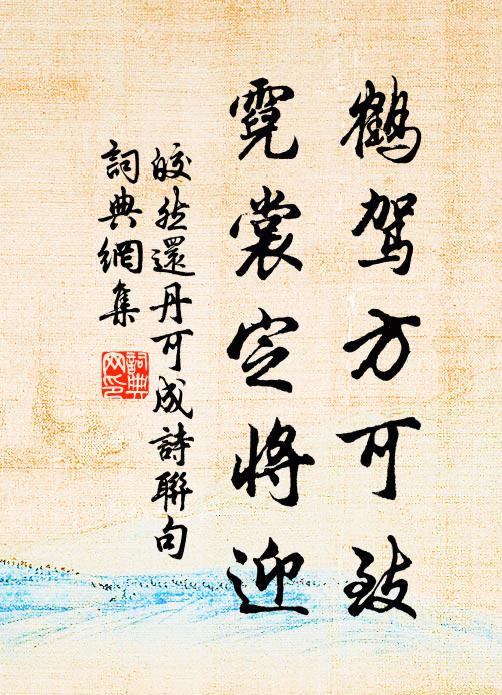 鶴駕方可致
霓裳定將迎
皎然還丹可成詩聯句
詞典網集
詞典网印